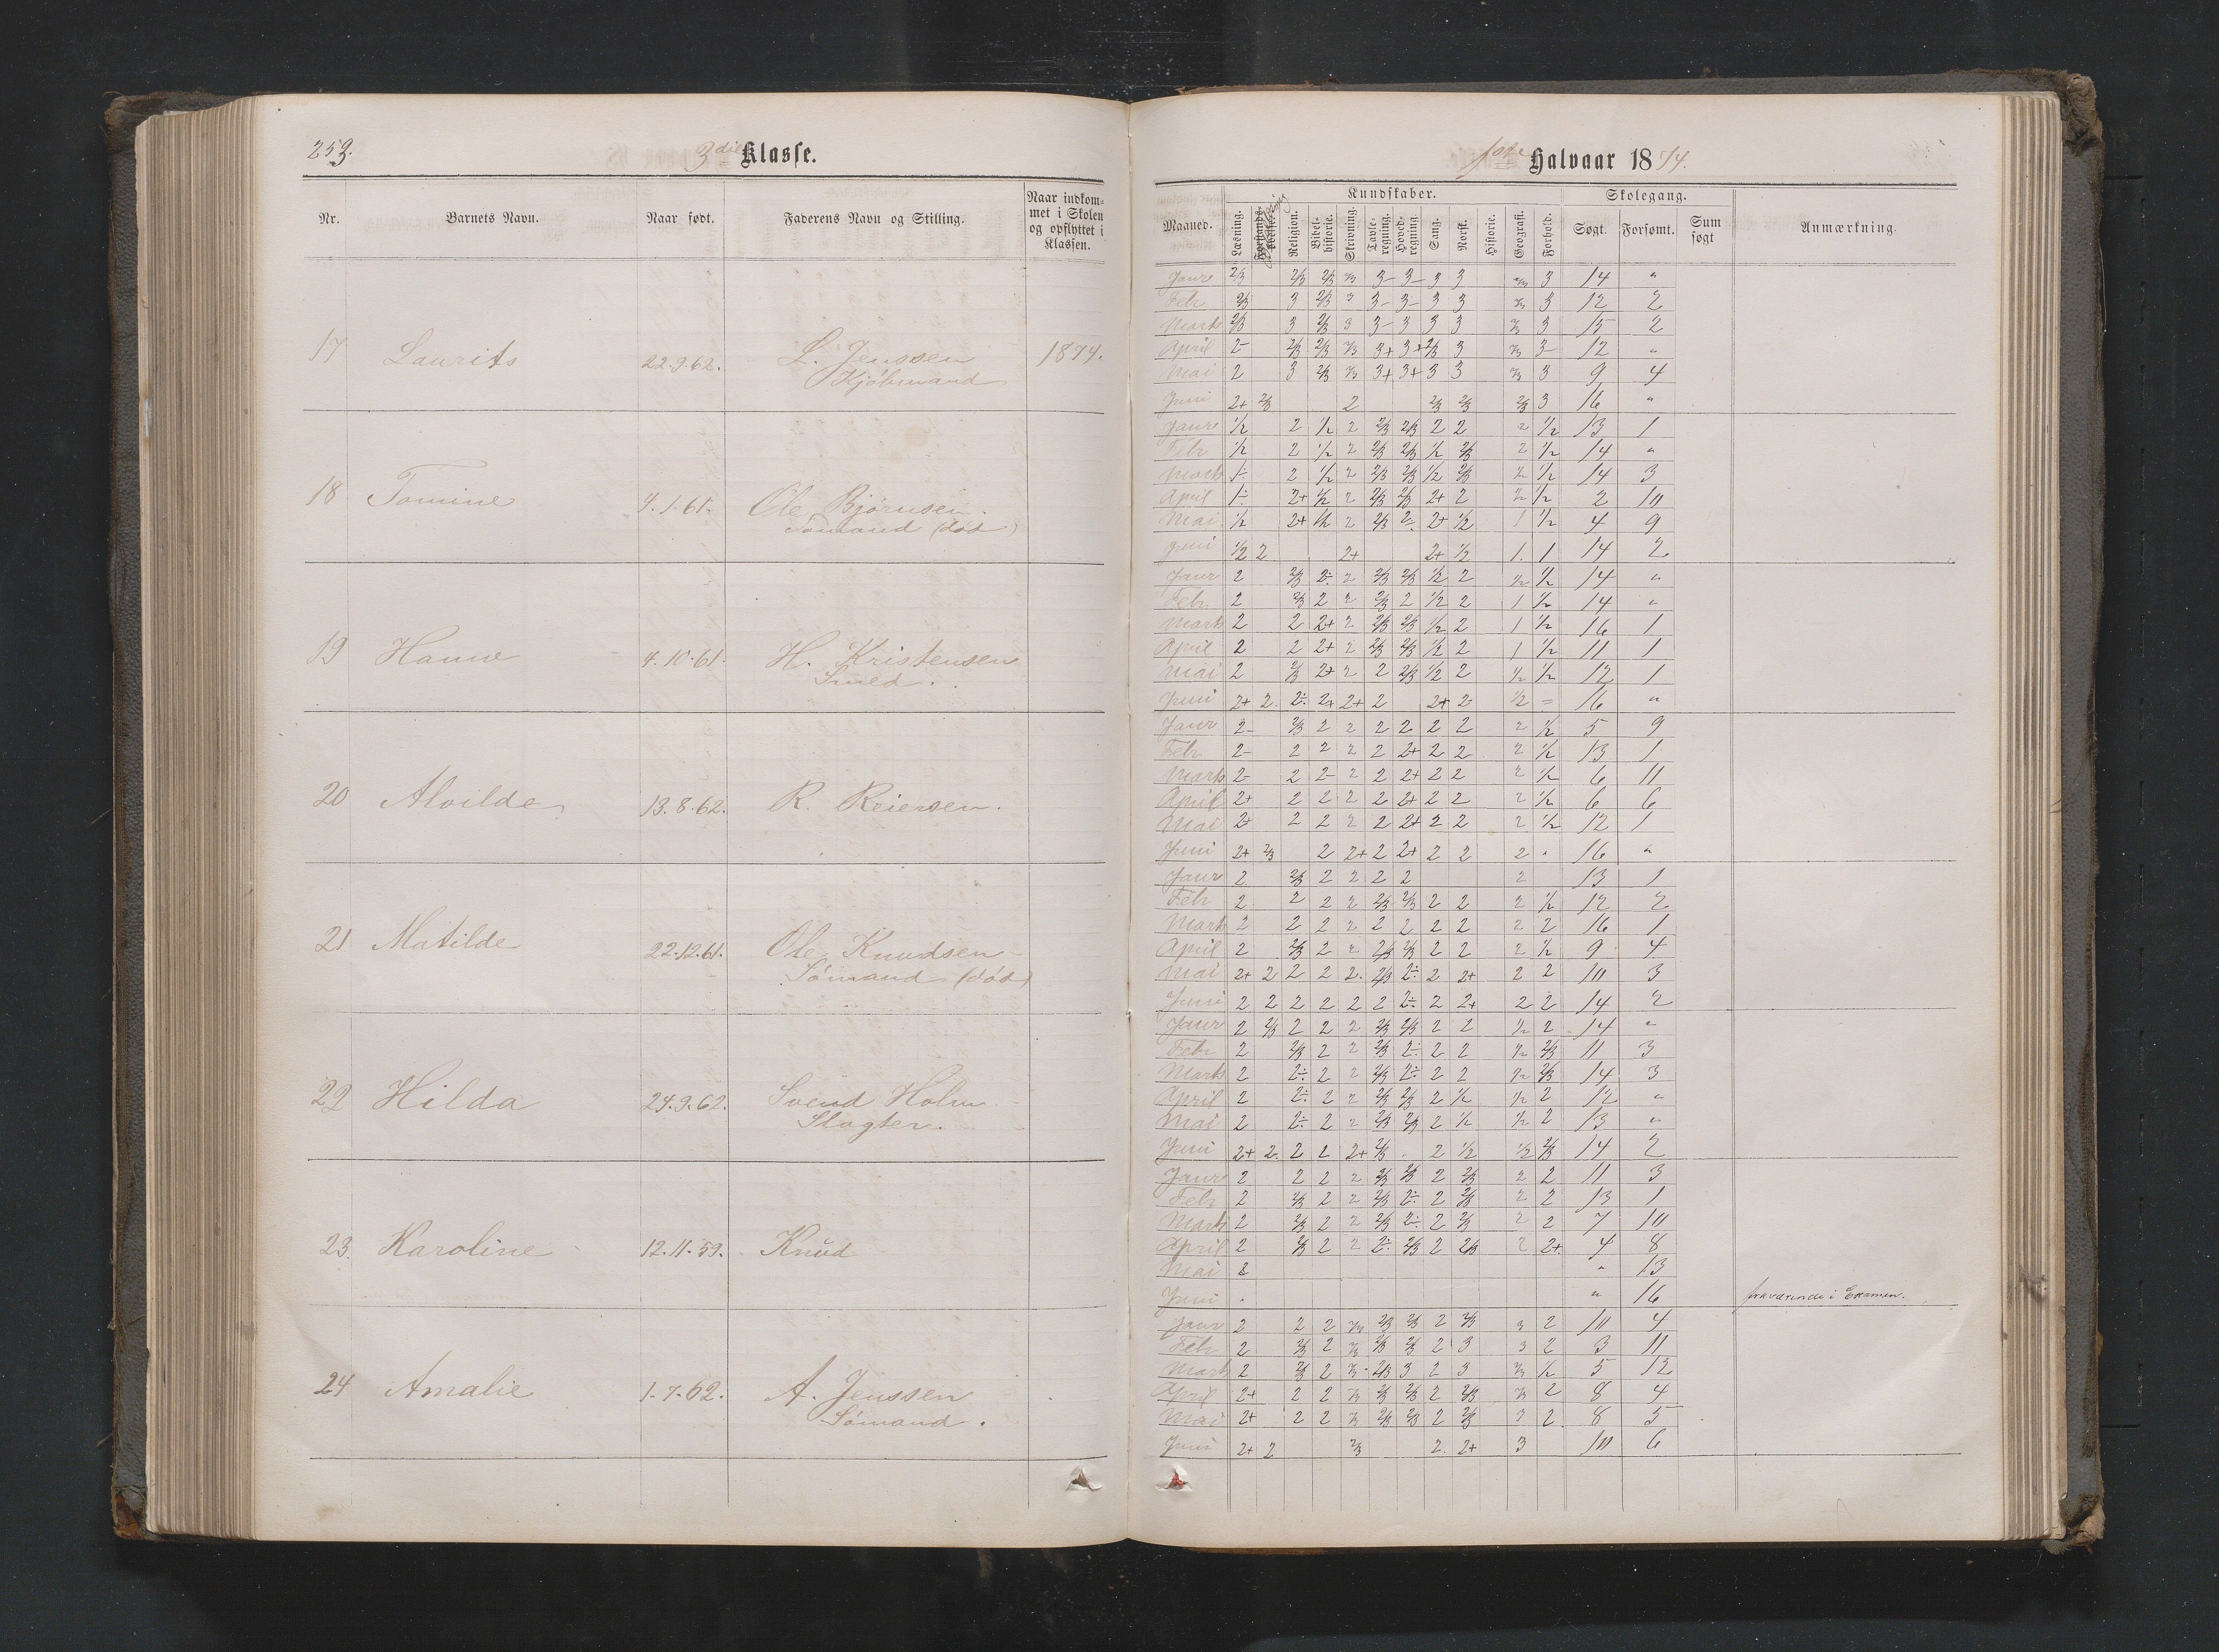 253.
3die Klasse.
Nr.
Barnets Navn.
Naar født.
Faderens Navn og Stilling.
Naar indkom-
met i Skolen
og opflyttet i
Klassen.
17 Laurits 22.9.62. L. Jenssen 1874.
Kjöbmand
18 Tomine 4.1.61. Ole Bjørnsen.
Sömand (död)
19 Hanne 4.10.61. H. Kristensen
Smed.
20 Alvilde 13.8.62. R. Reiersen.
21 Matilde 22.12.61. Ole Knudsen
Sömand (död)
22 Hilda 24.9.62. Svend Holm
Slagter.
23. Karoline 12.11.59. Knud
24 Amalie 1.7.62. A. Jenssen
Sömand.
1ste Halvaar 1874.
Maaned.
Kundskaber.
Læsning.
Religion.
Bibel-
historie.
Skrivning.
Tavle-
regning.
Hoved-
regning.
Sang.
Norsk.
Historie.
Geografi.
Forhold.
Skolegang.
Søgt.
Forsømt.
Sum
søgt
Anmærkning.
Janr 2/3 2/3 2/3 2/3 3- 3- 3 3 2/3 3 14 "
Febr 2/3 3 2/3 3 3- 3- 3 3 2/3 3 12 2
Marts 2/3 3 2/3 3 3- 3 3 3 2/3 3 15 2
April 2- 2/3 2/3 2/3 3+ 3+ 2/3 3 2/3 3- 12 "
Mai 2 3 2/3 2/3 3+ 3+ 3 3 2/3 3 9 4
Juni 2+ 2/3 2 2/3 2/3 2/3 3 16 "
Janr 1/2 2 1/2 2 2/3 2/3 2 2 2 1/2 13 1
Febr 1/2 2 1/2 2 2/3 2/3 1/2 2/3 2 1/2 14 "
Marts 1÷ 2 1/2 2 2/3 2/3 1/2 2/3 2 1/2 14 3
April 1÷ 2+ 1/2 2 2/3 2/3 2+ 2 2 1/2 2 10
Mai 1/2 2+ 1/2 2 2/3 2÷ 2+ 1/2 1 1/2 4 9
Juni 1/2 2 2+ 2+ 1/2 1. 1 14 2
Janr 2 2/3 2÷ 2 2/3 2/3 1/2 2 1/2 1/2 14 "
Febr 2 2/3 2 2 2/3 2 1/2 2 1 1/2 14 "
Marts 2 2 2+ 2 2/3 2/3 1/2 2 1 1/2 16 1
April 2 2 2+ 2 2/3 2/3 1/2 2 1 1/2 11 1
Mai 2 2/3 2+ 2 2 2/3 1/2 2 1/2 1/2 12 1
Juni 2+ 2. 2÷ 2+ 2+ 2 2+ 2 1/2 = 16 "
Janr 2- 2/3 2 2 2 2 2 2 2 1/2 5 9
Febr 2- 2 2 2 2 2+ 2 2 2 1/2 13 1
Marts 2- 2 2- 2 2 2+ 2 2 2 1/2 6 11
April 2+ 2 2 2 2 2+ 2 2 2 1/2 6 6
Mai 2+ 2 2 2 2 2+ 2 2 2 1/2 12 1
Juni 2+ 2/3 2 2+ 2 2+ 2 2 2 " 16 "
Janr 2 2/3 2 2 2 2 2 13 1
Febr 2 2 2 2 2/3 2/3 2 2 2 1/2 12 2
Marts 2 2 2 2 2 2 2 2 2 2 16 1
April 2 2/3 2 2 2/3 2/3 2 2 2 1/2 9 4
Mai 2+ 2 2 2 2. 2/3 2÷ 2 2+ 2 2 10 3
Juni 2 2 2 2 2 2 2÷ 2 2+ 2 2 14 2
Janr 2 2/3 2 2 2 2/3 2/3 2 2 1/2 2 14 "
Febr 2 2/3 2 2 2/3 2÷ 2 2 1/2 2/3 11 3
Marts 2 2÷ 2 2 2/3 2÷ 2 2 1/2 2/3 14 3
April 2 2÷ 2 2 2/3 2/3 2 1/2 1/2 2 12 "
Mai 2 2÷ 2 2 2/3 2/3 2 1/2 1/2 2 13 "
Juni 2+ 2. 2 2 2+ 2/3 . 2 1/2 1/2 2/3 14 2
Janr 2 2 2 2 2/3 2/3 2 2/3 2 2 11 3
Febr 2 2/3 2 2 2/3 2÷ 2 2/3 2 2 13 1
Marts 2 2/3 2 2 2/3 2÷ 2 2/3 2 2 7 10
April 2 2/3 2 2 2÷ 2/3 2 2/3 2 2+ 4 8
Mai 2 " 13
Juni . " 16 fraværende i Examen.
Janr 2 2 2 2/3 2/3 2/3 2 2/3 3 2 10 4
Febr 2 2/3 2 2/3 2/3 2/3 2 3 3 2 3 11
Marts 2 2/3 2 2/3 2/3 3 2 3 2/3 1/2 5 12
April 2+ 2 2 2/3 2/3 2/3 2 2/3 2/3 2 8 4
Mai 2+ 2 2 2/3 2/3 2/3 2 2/3 3 2 8 5
Juni 2+ 2 2/3 2. 2+ 3 10 6